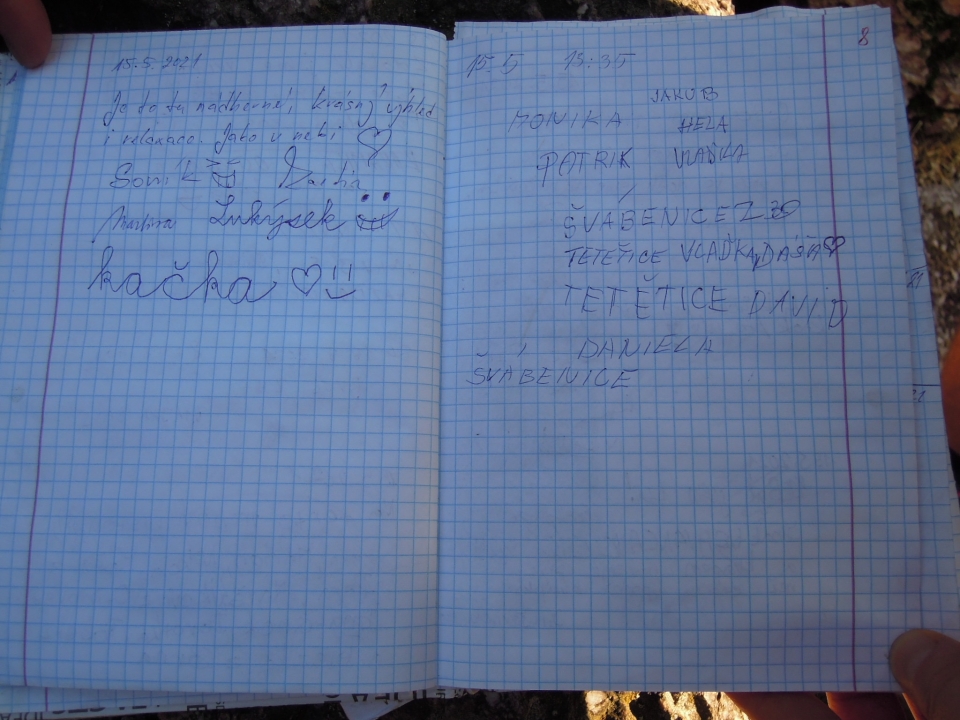 15.5.2021
Je to tu nádherné, krásný výhled
i relaxace. Jako v nebi
Soník Martin
Martina Lukýsek
kačka
8
15.5 15:35
JAKUB
MONIKA HELA
PATRIK VLAĎKA
ŠVÁBENICE Z 39
TETĚTICE VLAĎKA, DÁŠA
TETĚTICE DAVID
DANIELA
ŠVÁBENICE